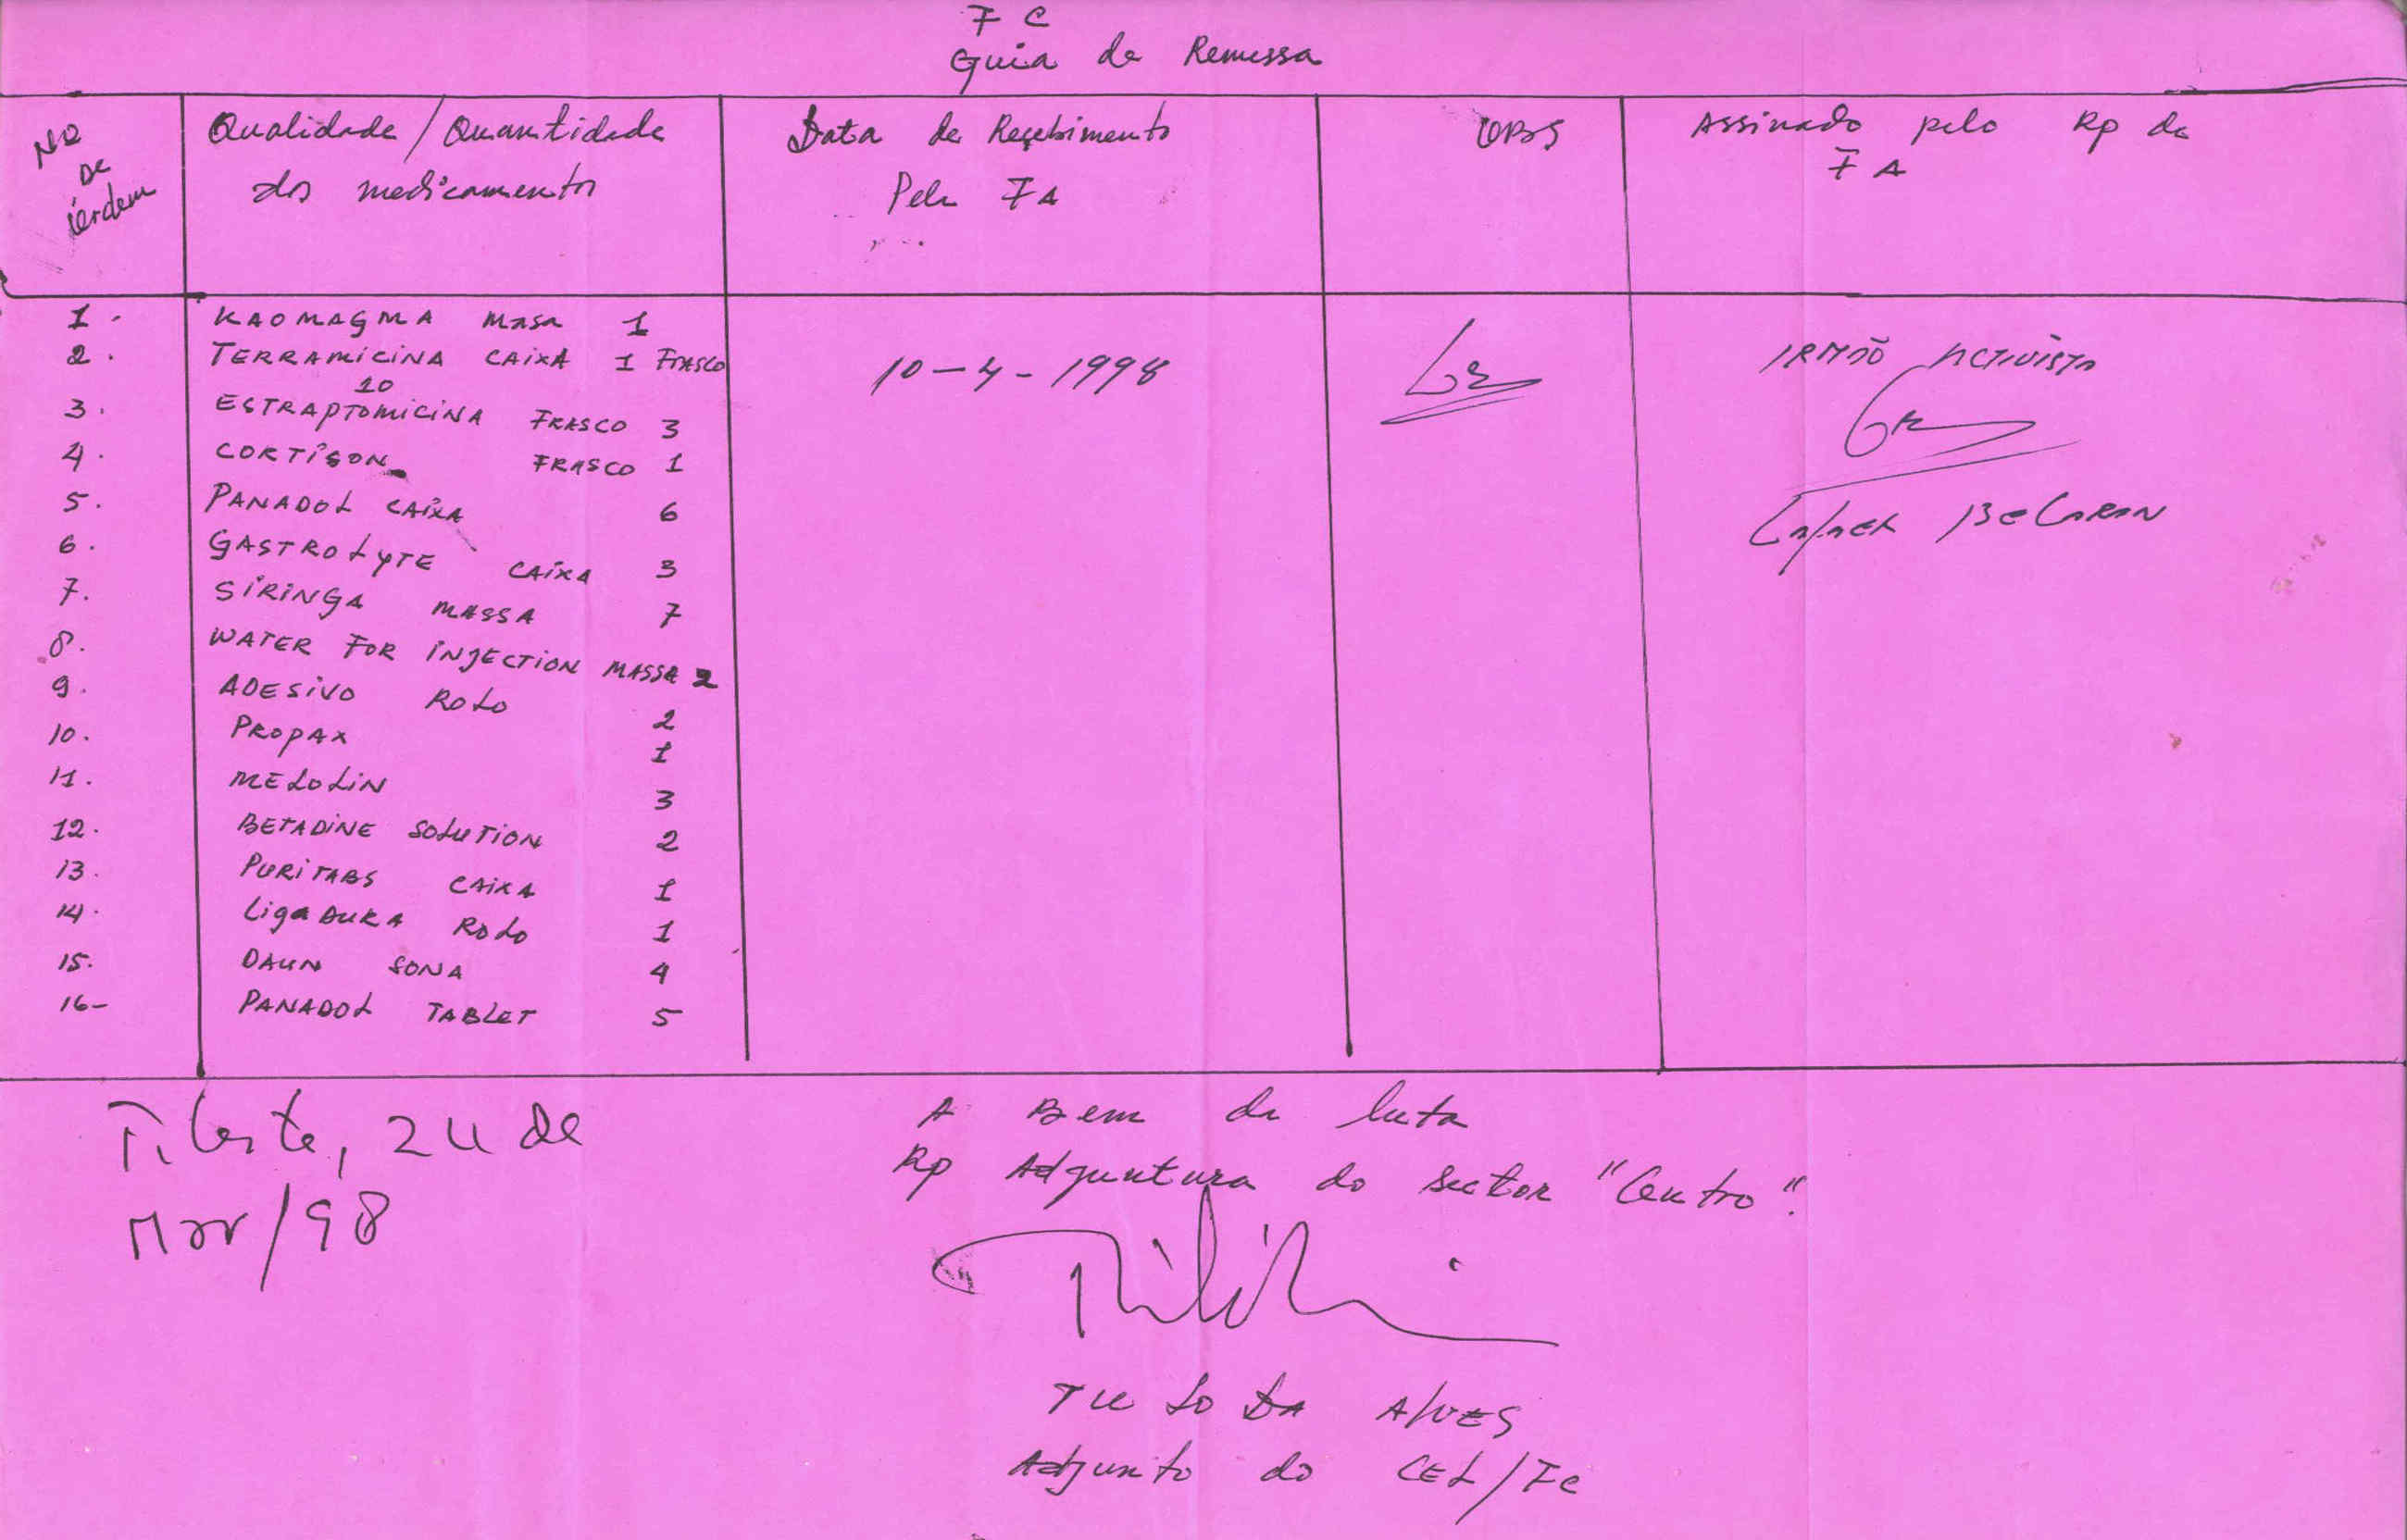 F C
Guia de Remessa
Nº de órdem
Qualidade / Quantidade dos medicamentos
Data de Recebimento Pela FA
OBS
Assinado pelo Rp da FA
1. KAOMAGMA Masa 1
2. TERRAMICINA CAIXA 1 FRASCO 10
3. ESTRAPTOMICINA FRASCO 3
4. CORTISON FRASCO 1
5. PANADOL CAIXA 6
6. GASTROLYTE CAIXA 3
7. SIRINGA MASSA 7
8. WATER FOR INJECTION MASSA 2
9. ADESIVO ROLO 2
10. PROPAX 1
11. MELOLIN 3
12. BETADINE SOLUTION 2
13. PURITABS CAIXA 1
14. LIGADURA ROLO 1
15. DAUN SONA 4
16- PANADOL TABLET 5
10-4-1998
IRMÃO ACTIVISTA
BELARAN
T. Leste, 24 de
Mar/98
A Bem da luta
Rp Adjuntura do Sector "Centro".
TU LO DA ALVES
Adjunto do CEL/FC